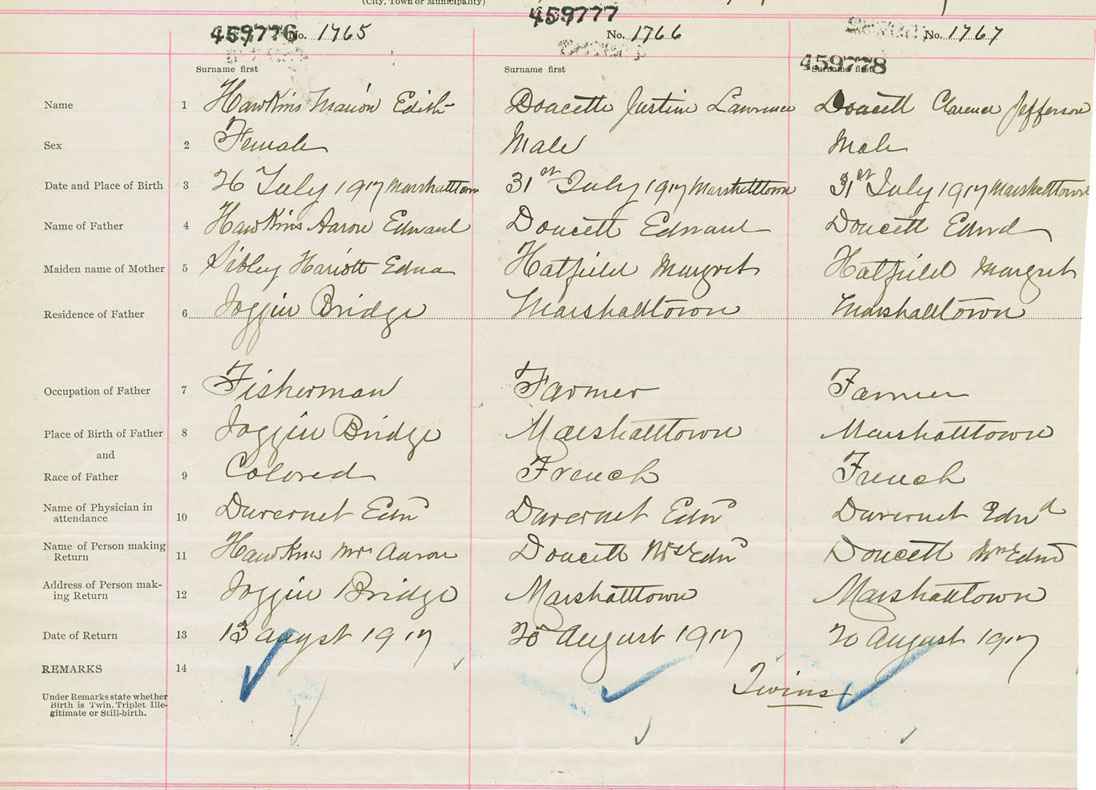 (City, Town or Municipality)
459776 No. 1765 459777 No. 1766 No. 1767
459778
Surname first Surname first Surname first
Name 1 Hawkins Marion Edith Doucette Justine Lawrence Doucett Clarence Jefferson
Sex 2 Female Male Male
Date and Place of Birth 3 26 July 1917 Marshalltown 31st July 1917 Marshalltown 31st July 1917 Marshalltown
Name of Father 4 Hawkins Aaron Edward Doucett Edward Doucett Edwd
Maiden name of Mother 5 Sibley Hariott Edna Hatfield Margret Hatfield Margret
Residence of Father 6 Joggin Bridge Marshalltown Marshalltown
Occupation of Father 7 Fisherman Farmer Farmer
Place of Birth of Father 8 Joggin Bridge Marshalltown Marshalltown
and
Race of Father 9 Colored French French
Name of Physician in
attendance 10 Duvernet Edwd Duvernet Edwd Duvernet Edwd
Name of Person making
Return 11 Hawkins Mrs Aaron Doucett Mrs Edwd Doucett Mrs Edwd
Address of Person mak-
ing Return 12 Joggin Bridge Marshalltown Marshalltown
Date of Return 13 13 augyst 1917 20 August 1917 20 August 1917
REMARKS 14 Twins
Under Remarks state whether
Birth is Twin, Triplet, Ille-
gitimate or Still-birth.